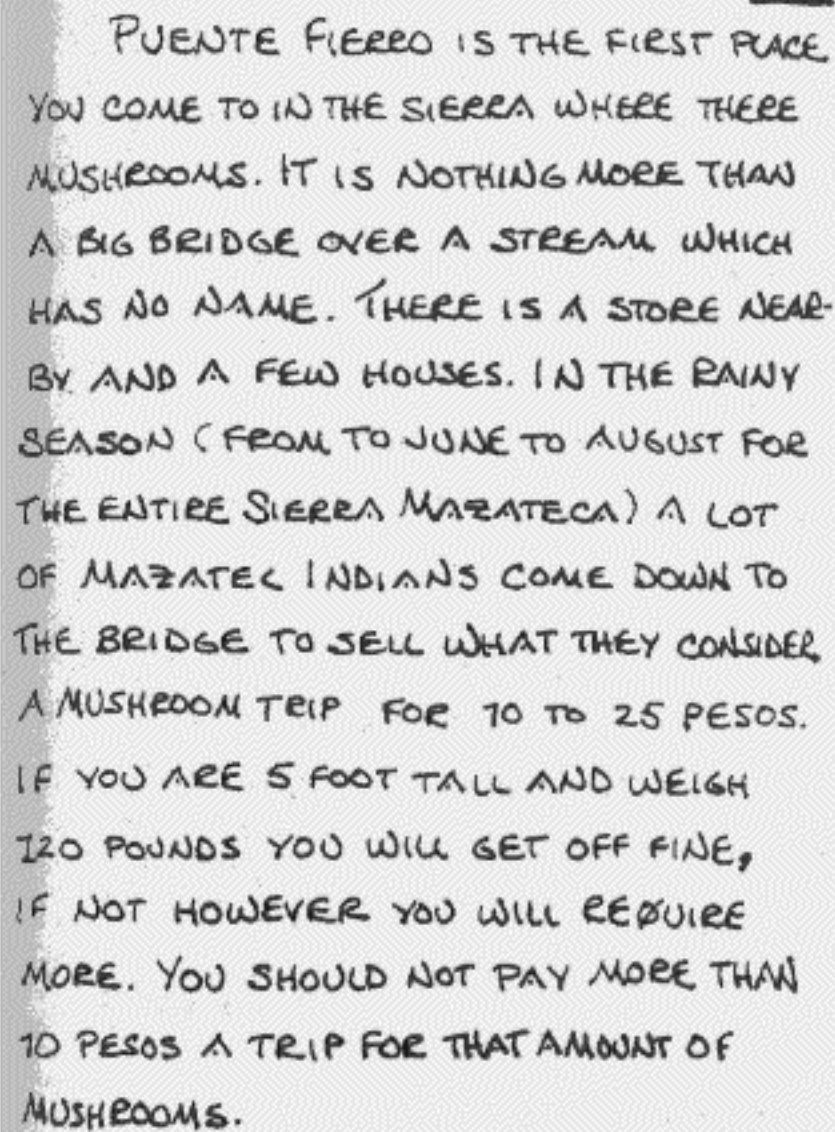 PUENTE FIERRO IS THE FIRST PLACE
YOU COME TO IN THE SIERRA WHERE THERE
MUSHROOMS. IT IS NOTHING MORE THAN
A BIG BRIDGE OVER A STREAM WHICH
HAS NO NAME. THERE IS A STORE NEAR-
BY AND A FEW HOUSES. IN THE RAINY
SEASON (FROM TO JUNE TO AUGUST FOR
THE ENTIRE SIERRA MAZATECA) A LOT
OF MAZATEC INDIANS COME DOWN TO
THE BRIDGE TO SELL WHAT THEY CONSIDER
A MUSHROOM TRIP FOR 10 TO 25 PESOS.
IF YOU ARE 5 FOOT TALL AND WEIGH
120 POUNDS YOU WILL GET OFF FINE,
IF NOT HOWEVER YOU WILL REQUIRE
MORE. YOU SHOULD NOT PAY MORE THAN
10 PESOS A TRIP FOR THAT AMOUNT OF
MUSHROOMS.